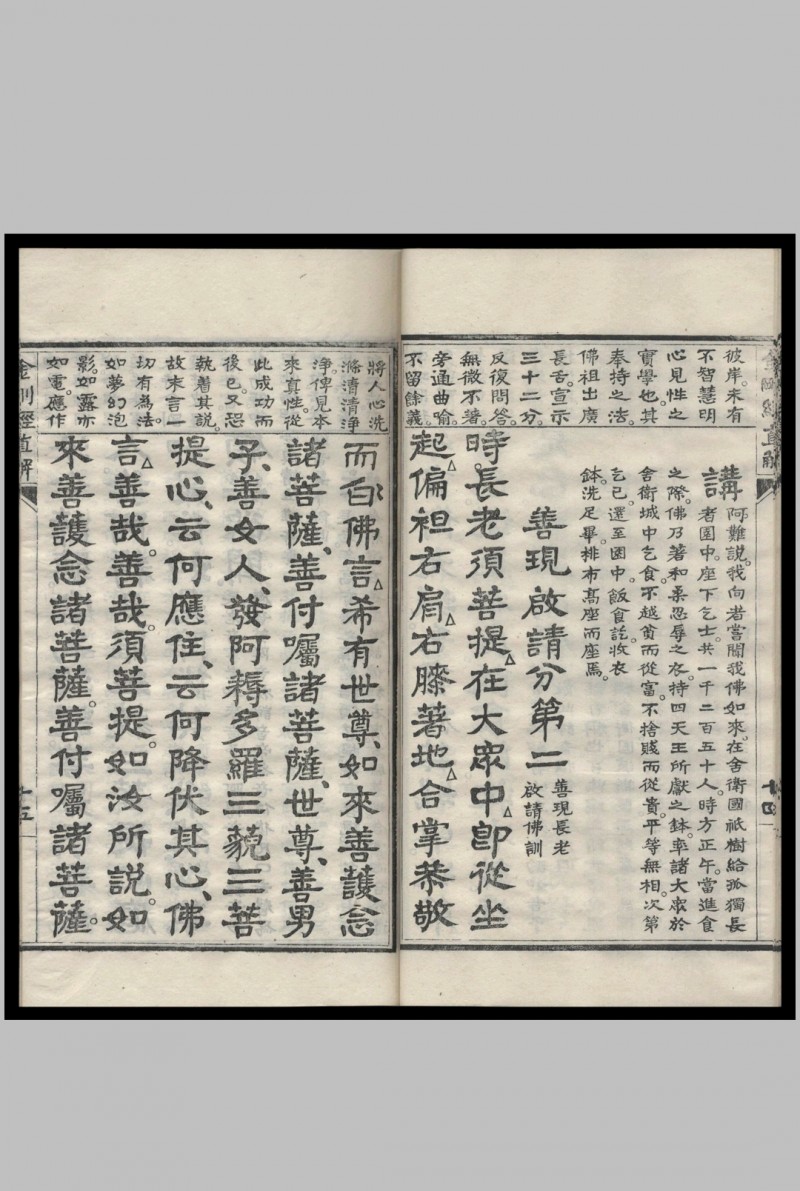 彼岸。未有
不智慧明
心見性之
實學也。其
奉持之法。
佛祖出廣
長舌。宣示
三十二分。
反復問答。
無微不著。
旁通曲喻。
不留餘義。
講
阿難說。我向者嘗聞我佛如來。在舍衛國祇樹給孤獨長
者園中。座下乞士。共一千二百五十人。時方正午。當進食
之際。佛乃著和柔忍辱之衣。持四天王所獻之鉢。率諸大眾於
舍衛城中乞食。不越貧而從富。不捨賤而從貴。平等無相。次第
乞已。還至園中。飯食訖。收衣
鉢。洗足畢。排布高座而座焉。
善現啟請分第二
善現長老
啟請佛訓
時。長老須菩提。在大眾中。即從坐
起。偏袒右肩。右膝著地。合掌恭敬
金剛經直解
廿四
將人心洗
滌清清淨
淨。俾見本
來真性。從
此成功而
後已。又恐
執着其說。
故末言一
切有為法。
如夢幻泡
影。如露亦
如電。應作
而白佛言。希有世尊、如來善護念
諸菩薩、善付囑諸菩薩、世尊、善男
子、善女人、發阿耨多羅三藐三菩
提心、云何應住、云何降伏其心、佛
言。善哉。善哉。須菩提。如汝所說。如
來善護念諸菩薩。善付囑諸菩薩。
金剛經直解
廿五